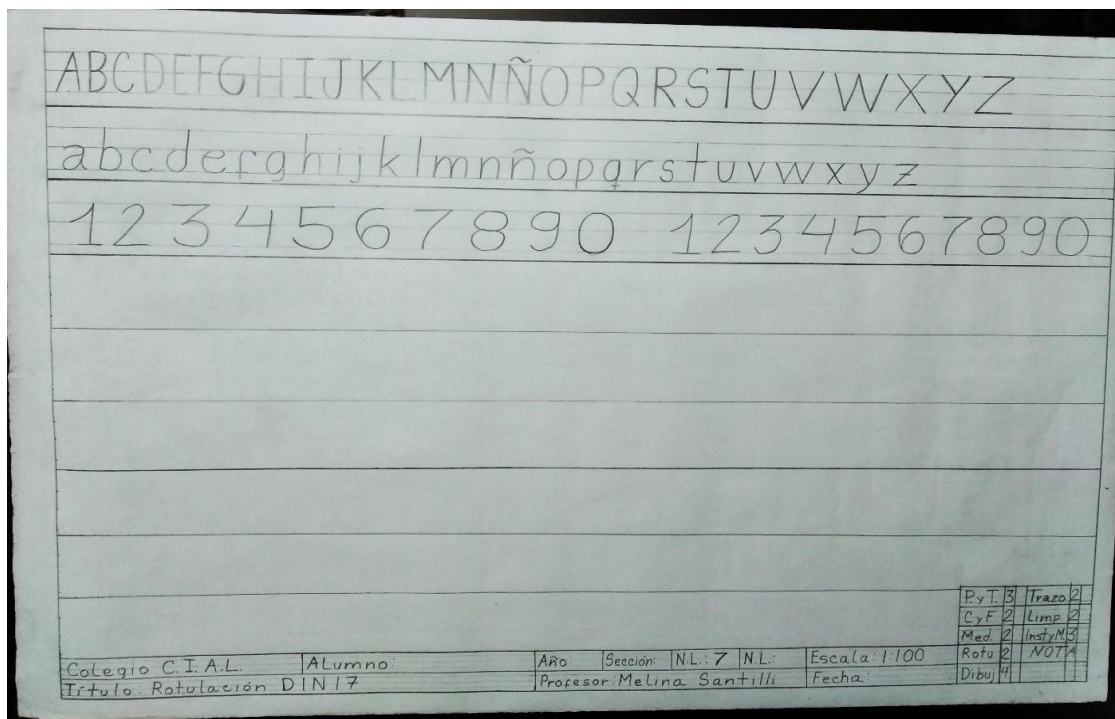 ABCDEFGHIJKLMNÑOPQRSTUVWXYZ
abcdefghijklmnñopqrstuvwxyz
1 2 3 4 5 6 7 8 9 0 1 2 3 4 5 6 7 8 9 0
P.y T. 3 Trazo 2
C y F 2 Limp 2
Med. 2 Inst y M 3
Rotu 2 NOTA
Dibuj 4
Colegio C.I.A.L. ALumno: Año Sección: N.L.: 7 N.L.: Escala: 1:100
Título: Rotulación DIN 17 Profesor: Melina Santilli Fecha: